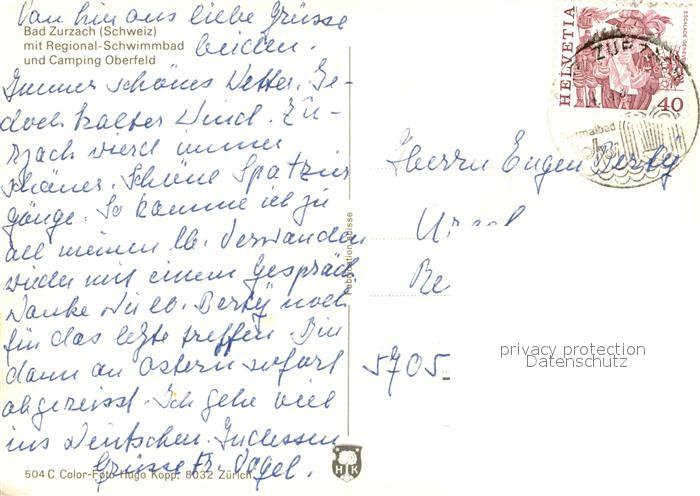 Von hier aus liebe Grüsse
beiden.
Bad Zurzach (Schweiz)
mit Regional-Schwimmbad
und Camping Oberfeld
Immer schönes Wetter. Je-
doch kalter Wind. Zur-
zach wird immer
schöner. Schöne Spatzier
gänge. So komme ich zu
all meinen lb. Verwanden
wieder mit einem Gespräch
Danke Dir lb. Berty noch
für das letzte treffen. Bin
dann an Ostern sofort
abgereisst. Ich gehe viel
ins Deutschen. Indessen
Grüsse Fr. Vogel.
504 C Color-Foto Hugo Kopp, 8032 Zürich
HK
HELVETIA
40
ZURZACH
Thermalbad
Herrn Eugen Berty
5705
privacy protection
Datenschutz